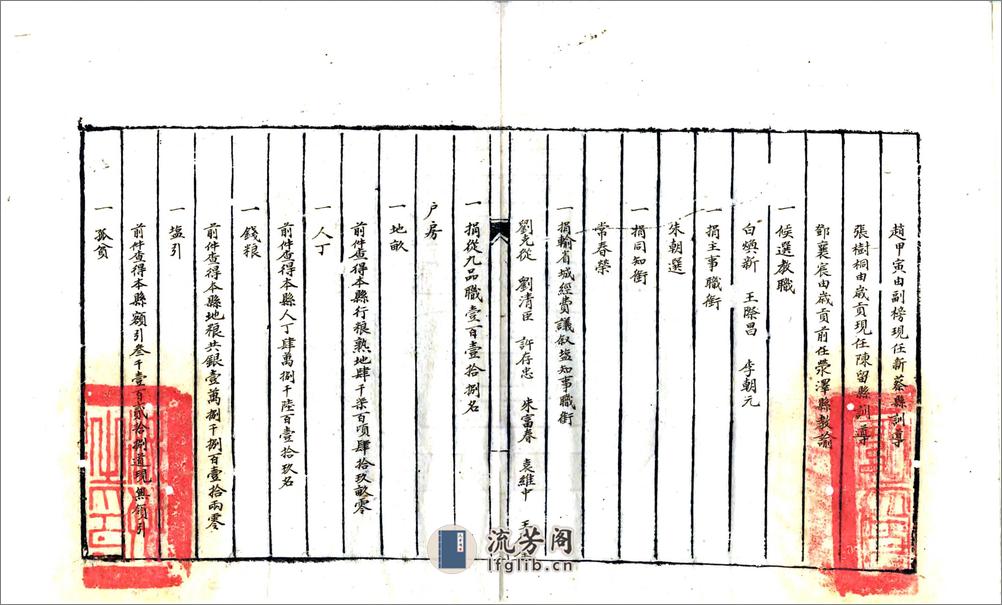 趙甲寅由副榜現任新蔡縣訓導
張樹桐由歲貢現任陳留縣訓導
鄧襄宸由歲貢前任滎澤縣教諭
一候選教職
白煥新 王際昌 李朝元
一捐主事職銜
朱朝選
一捐同知銜
常春榮
一捐輸省城經費議叙塩知事職銜
劉克從 劉清臣 許存忠 朱富春 袁維中 王
一捐從九品職壹百壹拾捌名
户房
一地畝
前件查得本縣行粮熟地肆千柒百頃肆拾玖畝零
一人丁
前件查得本縣人丁肆萬捌千陸百壹拾玖名
一錢粮
前件查得本縣地粮共銀壹萬捌千捌百壹拾兩零
一塩引
前件查得本縣額引叁千壹百貳拾捌道現無領引
一孤貧
流芳阁
lfglib.cn